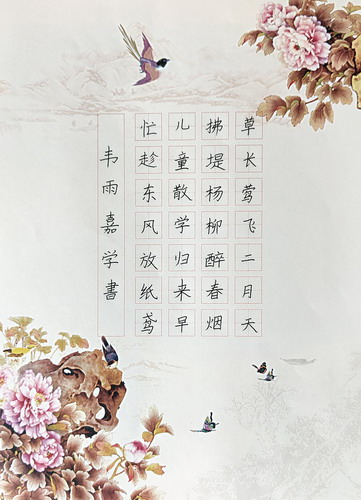 草长莺飞二月天
拂堤杨柳醉春烟
儿童散学归来早
忙趁东风放纸鸢
韦雨嘉学書